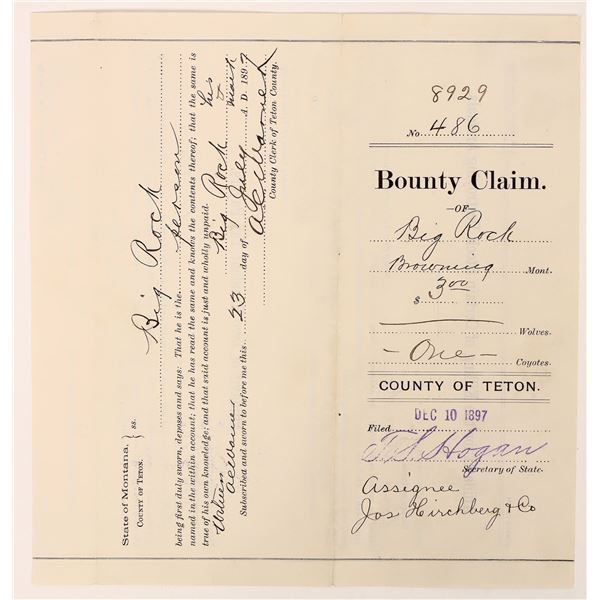 State of Montana, } ss.
COUNTY OF TETON.
Big Rock
being first duly sworn, deposes and says: That he is the person
named in the within account; that he has read the same and knows the contents thereof; that the same is
true of his own knowledge; and that said account is just and wholly unpaid.
his
Big Rock x
mark
Subscribed and sworn to before me this 23 day of July A. D. 1897
County Clerk of Teton County.
8929
No. 486
Bounty Claim.
—OF—
Big Rock
Browning Mont.
$ 3 00
Wolves.
- One - Coyotes.
COUNTY OF TETON.
DEC 10 1897
Filed
T. S. Hogan
Secretary of State.
Assignee
Jos Hirchberg & Co